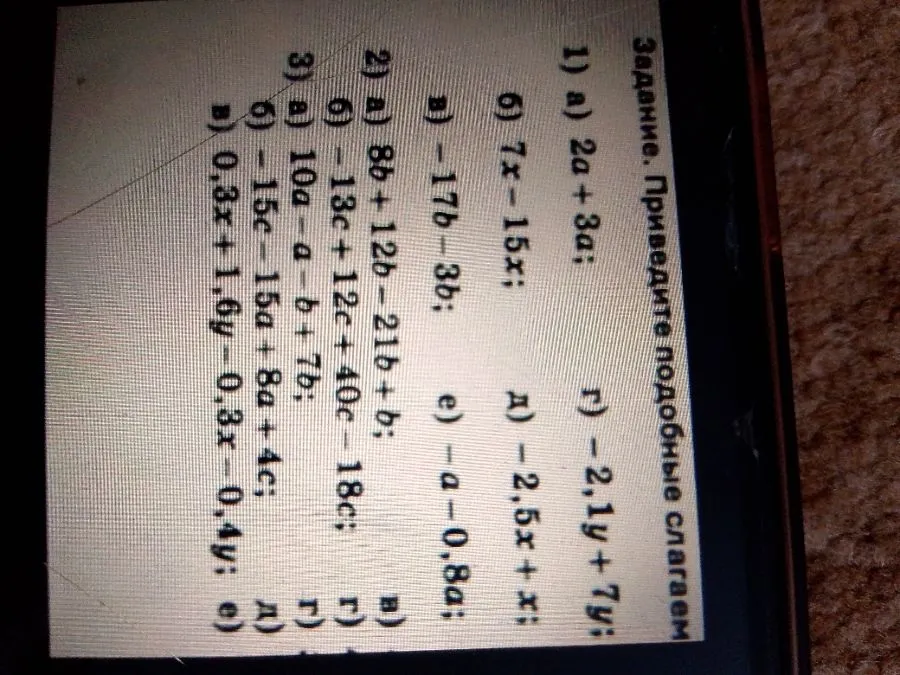 Задание. Приведите подобные слагаем
1) а) 2a + 3a; г) −2,1y + 7y;
б) 7x − 15x; д) −2,5x + x;
в) −17b − 3b; е) −a − 0,8a;
2) а) 8b + 12b − 21b + b; в)
б) −13c + 12c + 40c − 18c; г)
3) а) 10a − a − b + 7b; г)
б) −15c − 15a + 8a + 4c; д)
в) 0,3x + 1,6y − 0,3x − 0,4y; е)